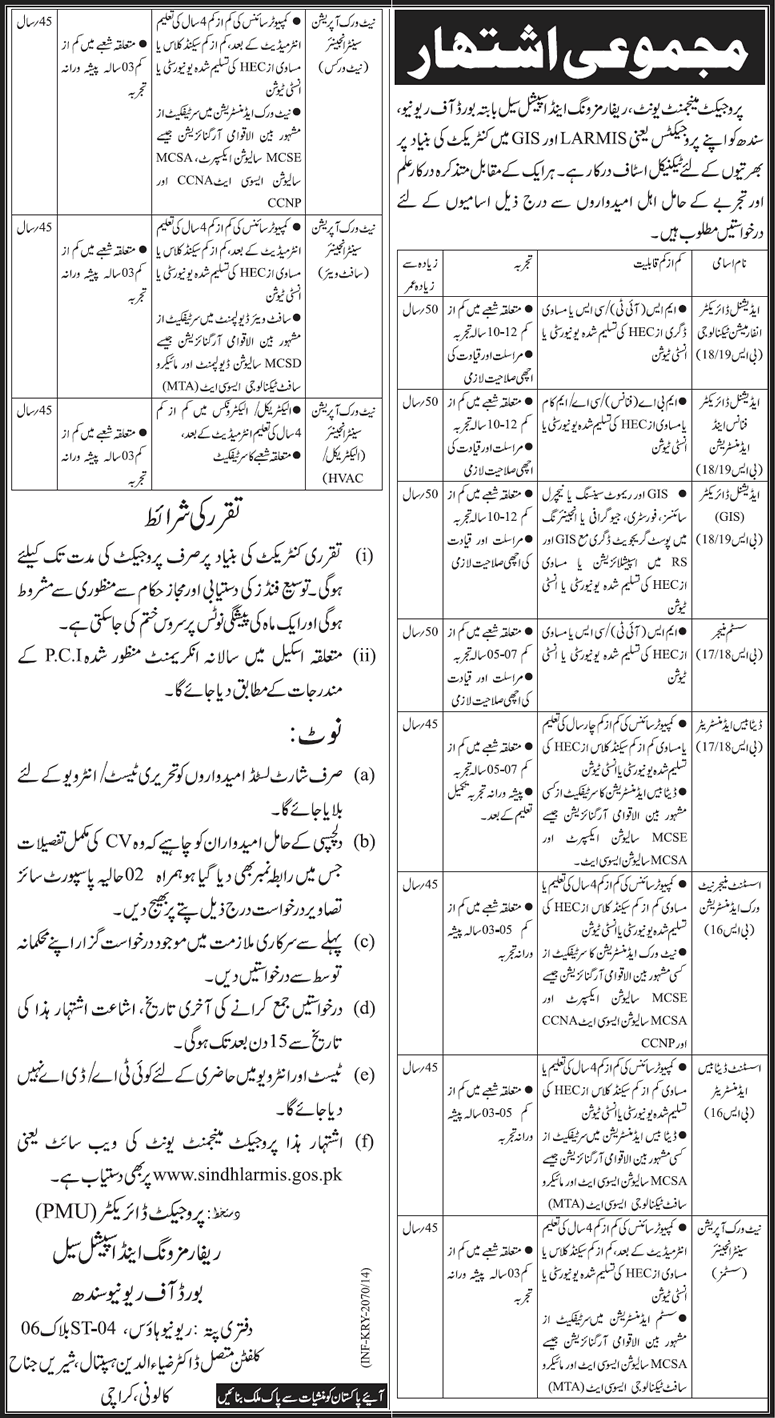 مجموعی اشتہار
پروجیکٹ مینجمنٹ یونٹ، ریفارمز ونگ اینڈ اسپیشل سیل بابتہ بورڈ آف ریونیو،
سندھ کو اپنے پروجیکٹس یعنی LARMIS اور GIS میں کنٹریکٹ کی بنیاد پر
بھرتیوں کے لئے ٹیکنیکل اسٹاف درکار ہے۔ ہر ایک کے مقابل متذکرہ درکار علم
اور تجربے کے حامل اہل امیدواروں سے درج ذیل اسامیوں کے لئے
درخواستیں مطلوب ہیں۔
نام اسامی
کم از کم قابلیت
تجربہ
زیادہ سے
زیادہ عمر
ایڈیشنل ڈائریکٹر
انفارمیشن ٹیکنالوجی
(بی ایس 18/19)
● ایم ایس (آئی ٹی)/سی ایس یا مساوی
ڈگری از HEC کی تسلیم شدہ یونیورسٹی یا
انسٹی ٹیوشن
● متعلقہ شعبے میں کم از
کم 12-10 سالہ تجربہ
● مراسلت اور قیادت کی
اچھی صلاحیت لازمی
50 سال
ایڈیشنل ڈائریکٹر
فنانس اینڈ
ایڈمنسٹریشن
(بی ایس 18/19)
● ایم بی اے (فنانس)/سی اے/ایم کام
یا مساوی از HEC کی تسلیم شدہ یونیورسٹی یا
انسٹی ٹیوشن
● متعلقہ شعبے میں کم از
کم 12-10 سالہ تجربہ
● مراسلت اور قیادت کی
اچھی صلاحیت لازمی
50 سال
ایڈیشنل ڈائریکٹر
(GIS)
(بی ایس 18/19)
● GIS اور ریموٹ سینسنگ یا نیچرل
سائنسز، فورسٹری، جیوگرافی یا انجینئرنگ
میں پوسٹ گریجویٹ ڈگری مع GIS اور
RS میں اسپیشلائزیشن یا مساوی
از HEC کی تسلیم شدہ یونیورسٹی یا انسٹی
ٹیوشن
● متعلقہ شعبے میں کم از
کم 12-10 سالہ تجربہ
● مراسلت اور قیادت
کی اچھی صلاحیت لازمی
50 سال
سسٹم منیجر
(بی ایس 17/18)
● ایم ایس (آئی ٹی)/سی ایس یا مساوی
از HEC کی تسلیم شدہ یونیورسٹی یا انسٹی
ٹیوشن
● متعلقہ شعبے میں کم از
کم 07-05 سالہ تجربہ
● مراسلت اور قیادت
کی اچھی صلاحیت لازمی
50 سال
ڈیٹا بیس ایڈمنسٹریٹر
(بی ایس 17/18)
● کمپیوٹر سائنس کی کم از کم چار سال کی تعلیم
یا مساوی کم از کم سیکنڈ کلاس از HEC کی
تسلیم شدہ یونیورسٹی یا انسٹی ٹیوشن
● ڈیٹا بیس ایڈمنسٹریشن کا سرٹیفکیٹ از کسی
مشہور بین الاقوامی آرگنائزیشن جیسے
MCSE سالیوشن ایکسپرٹ اور
MCSA سالیوشن ایسوسی ایٹ۔
● متعلقہ شعبے میں کم از
کم 07-05 سالہ تجربہ
● پیشہ ورانہ تجربہ تکمیل
تعلیم کے بعد۔
45 سال
اسسٹنٹ منیجر نیٹ
ورک ایڈمنسٹریشن
(بی ایس 16)
● کمپیوٹر سائنس کی کم از کم 4 سال کی تعلیم یا
مساوی کم از کم سیکنڈ کلاس از HEC کی
تسلیم شدہ یونیورسٹی یا انسٹی ٹیوشن
● نیٹ ورک ایڈمنسٹریشن کا سرٹیفکیٹ از
کسی مشہور بین الاقوامی آرگنائزیشن جیسے
MCSE سالیوشن ایکسپرٹ اور
MCSA سالیوشن ایسوسی ایٹ CCNA
اور CCNP
● متعلقہ شعبے میں کم از
کم 05-03 سالہ پیشہ
ورانہ تجربہ
45 سال
اسسٹنٹ ڈیٹا بیس
ایڈمنسٹریٹر
(بی ایس 16)
● کمپیوٹر سائنس کی کم از کم 4 سال کی تعلیم یا
مساوی کم از کم سیکنڈ کلاس از HEC کی
تسلیم شدہ یونیورسٹی یا انسٹی ٹیوشن
● ڈیٹا بیس ایڈمنسٹریشن میں سرٹیفکیٹ از
کسی مشہور بین الاقوامی آرگنائزیشن جیسے
MCSA سالیوشن ایسوسی ایٹ اور مائیکرو
سافٹ ٹیکنالوجی ایسوسی ایٹ (MTA)
● متعلقہ شعبے میں کم از
کم 05-03 سالہ پیشہ
ورانہ تجربہ
45 سال
نیٹ ورک آپریشن
سینٹر انجینئر
(سسٹمز)
● کمپیوٹر سائنس کی کم از کم 4 سال کی تعلیم
انٹرمیڈیٹ کے بعد، کم از کم سیکنڈ کلاس یا
مساوی از HEC کی تسلیم شدہ یونیورسٹی یا
انسٹی ٹیوشن
● سسٹم ایڈمنسٹریشن میں سرٹیفکیٹ از
مشہور بین الاقوامی آرگنائزیشن جیسے
MCSA سالیوشن ایسوسی ایٹ اور مائیکرو
سافٹ ٹیکنالوجی ایسوسی ایٹ (MTA)
● متعلقہ شعبے میں کم از
کم 03 سالہ پیشہ ورانہ
تجربہ
45 سال
نیٹ ورک آپریشن
سینٹر انجینئر
(نیٹ ورکس)
● کمپیوٹر سائنس کی کم از کم 4 سال کی تعلیم
انٹرمیڈیٹ کے بعد، کم از کم سیکنڈ کلاس یا
مساوی از HEC کی تسلیم شدہ یونیورسٹی یا
انسٹی ٹیوشن
● نیٹ ورک ایڈمنسٹریشن میں سرٹیفکیٹ از
مشہور بین الاقوامی آرگنائزیشن جیسے
MCSE سالیوشن ایکسپرٹ، MCSA
سالیوشن ایسوسی ایٹ CCNA اور
CCNP
● متعلقہ شعبے میں کم از
کم 03 سالہ پیشہ ورانہ
تجربہ
45 سال
نیٹ ورک آپریشن
سینٹر انجینئر
(سافٹ ویئر)
● کمپیوٹر سائنس کی کم از کم 4 سال کی تعلیم
انٹرمیڈیٹ کے بعد، کم از کم سیکنڈ کلاس یا
مساوی از HEC کی تسلیم شدہ یونیورسٹی یا
انسٹی ٹیوشن
● سافٹ ویئر ڈیولپمنٹ میں سرٹیفکیٹ از
مشہور بین الاقوامی آرگنائزیشن جیسے
MCSD سالیوشن ڈیولپمنٹ اور مائیکرو
سافٹ ٹیکنالوجی ایسوسی ایٹ (MTA)
● متعلقہ شعبے میں کم از
کم 03 سالہ پیشہ ورانہ
تجربہ
45 سال
نیٹ ورک آپریشن
سینٹر انجینئر
(الیکٹریکل/
HVAC)
● الیکٹریکل/ الیکٹرونکس میں کم از کم
4 سال کی تعلیم انٹرمیڈیٹ کے بعد،
● متعلقہ شعبے کا سرٹیفکیٹ
● متعلقہ شعبے میں کم از
کم 03 سالہ پیشہ ورانہ
تجربہ
45 سال
تقرر کی شرائط
(i) تقرری کنٹریکٹ کی بنیاد پر صرف پروجیکٹ کی مدت تک کیلئے
ہوگی۔ توسیع فنڈز کی دستیابی اور مجاز حکام سے منظوری سے مشروط
ہوگی اور ایک ماہ کی پیشگی نوٹس پر سروس ختم کی جاسکتی ہے۔
(ii) متعلقہ اسکیل میں سالانہ انکریمنٹ منظور شدہ P.C.I کے
مندرجات کے مطابق دیا جائے گا۔
نوٹ:
(a) صرف شارٹ لسٹڈ امیدواروں کو تحریری ٹیسٹ/انٹرویو کے لئے
بلایا جائے گا۔
(b) دلچسپی کے حامل امیدواران کو چاہیے کہ وہ CV کی مکمل تفصیلات
جس میں رابطہ نمبر بھی دیا گیا ہو ہمراہ 02 حالیہ پاسپورٹ سائز
تصاویر درخواست درج ذیل پتے پر بھیج دیں۔
(c) پہلے سے سرکاری ملازمت میں موجود درخواست گزار اپنے محکمانہ
توسط سے درخواستیں دیں۔
(d) درخواستیں جمع کرانے کی آخری تاریخ، اشاعت اشتہار ہذا کی
تاریخ سے 15 دن بعد تک ہوگی۔
(e) ٹیسٹ اور انٹرویو میں حاضری کے لئے کوئی ٹی اے/ ڈی اے نہیں
دیا جائے گا۔
(f) اشتہار ہذا پروجیکٹ مینجمنٹ یونٹ کی ویب سائٹ یعنی
www.sindhlarmis.gos.pk پر بھی دستیاب ہے۔
دستخط: پروجیکٹ ڈائریکٹر (PMU)
ریفارمز ونگ اینڈ اسپیشل سیل
بورڈ آف ریونیو سندھ
دفتری پتہ: ریونیو ہاؤس، ST-04 بلاک 06
کلفٹن متصل ڈاکٹر ضیاء الدین ہسپتال، شیریں جناح
کالونی، کراچی
آئیے پاکستان کو منشیات سے پاک ملک بنائیں
(INF-KRY-2070/14)